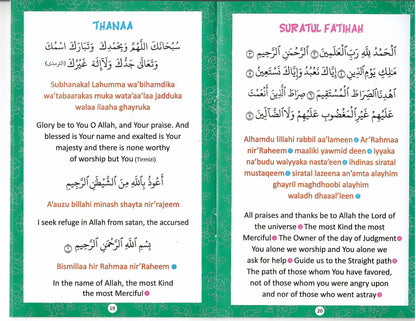 THANAA
سُبْحَانَكَ اللّٰهُمَّ وَبِحَمْدِكَ وَتَبَارَكَ اسْمُكَ
وَتَعَالٰى جَدُّكَ وَلَآ اِلٰهَ غَيْرُكَ (ترمذی)
Subhanakal Lahumma wa'bihamdika
wa'tabaarakas muka wata'aa'laa jadduka
walaa ilaaha ghayruka
Glory be to You O Allah, and Your praise. And
blessed is Your name and exalted is Your
majesty and there is none worthy
of worship but You (Tirmizi)
أَعُوذُ بِاللّٰهِ مِنَ الشَّيْطٰنِ الرَّجِيْمِ
A'auzu billahi minash shayta nir'rajeem
I seek refuge in Allah from satan, the accursed
بِسْمِ اللّٰهِ الرَّحْمٰنِ الرَّحِيْمِ
Bismillaa hir Rahmaa nir'Raheem
In the name of Allah, the most Kind
the most Merciful
19
SURATUL FATIHAH
اَلْحَمْدُ لِلّٰهِ رَبِّ الْعٰلَمِيْنَ ۝ الرَّحْمٰنِ الرَّحِيْمِ ۝
مٰلِكِ يَوْمِ الدِّيْنِ ۝ اِيَّاكَ نَعْبُدُ وَاِيَّاكَ نَسْتَعِيْنُ ۝
اِهْدِنَا الصِّرَاطَ الْمُسْتَقِيْمَ ۝ صِرَاطَ الَّذِيْنَ اَنْعَمْتَ
عَلَيْهِمْ غَيْرِ الْمَغْضُوْبِ عَلَيْهِمْ وَلَا الضَّآلِّيْنَ ۝
Alhamdu lillahi rabbil aa'lameen Ar'Rahmaa
nir'Raheem maaliki yawmid deen iyyaka
na'budu waiyyaka nasta'een ihdinas siratal
mustaqeem siratal lazeena an'amta alayhim
ghayril maghdhoobi alayhim
waladh dhaaal'leen
All praises and thanks be to Allah the Lord of
the universe The most Kind the most
Merciful The Owner of the day of Judgment
You alone we worship and You alone we
ask for help Guide us to the Straight path
The path of those whom You have favored,
not of those whom you were angry upon
and nor of those who went astray
20